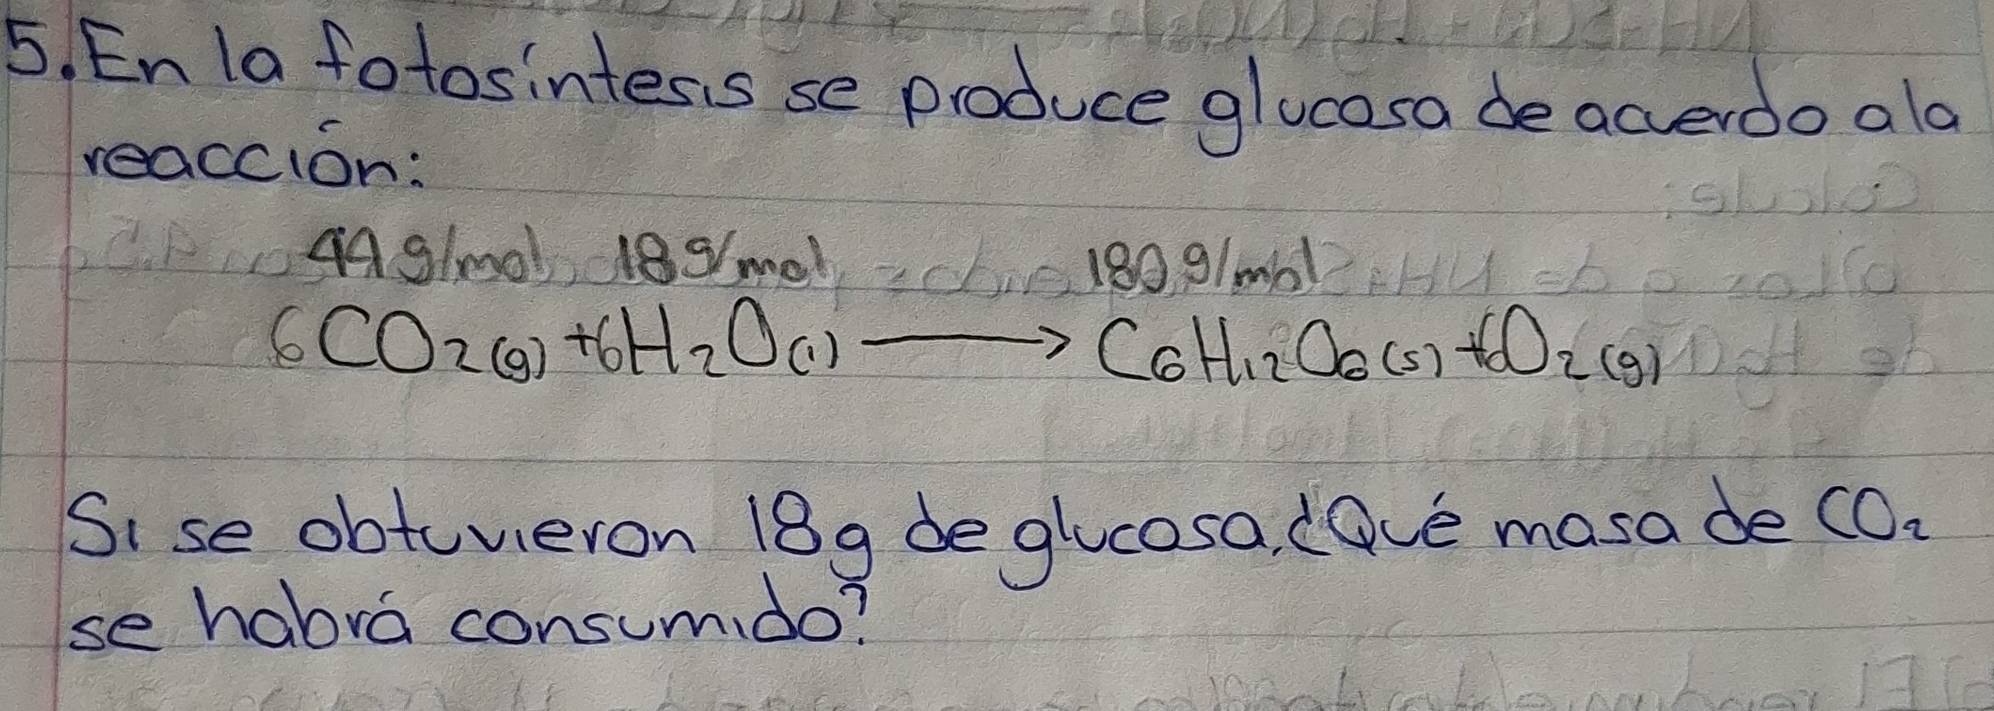 5. En la fotosíntesis se produce glucosa de acuerdo a la
reacción:
44 g/mol 18 g/mol 180 g/mol
6CO₂(g) + 6H₂O(l) → C₆H₁₂O₆(s) + 6O₂(g)
Si se obtuvieron 18g de glucosa, ¿Qué masa de CO₂
se habrá consumido?